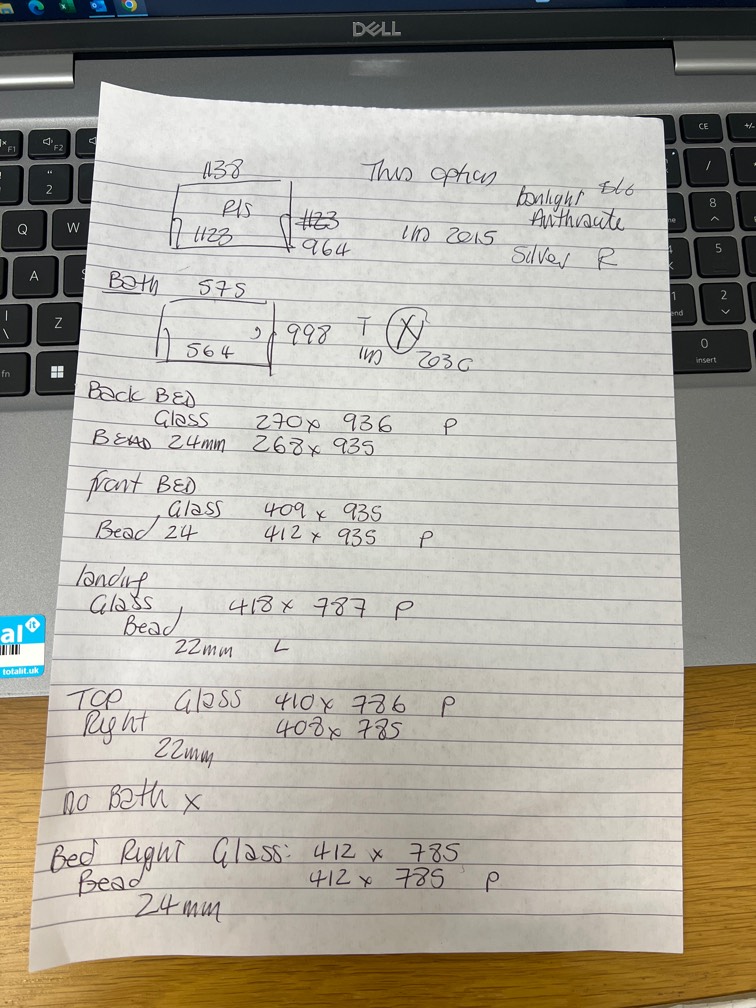 DELL
1138
This option
R15
1123
1123
964
Bonlight
Anthracite
Silver R
Bath 575
564
998 T X
Back BED
Glass 270 x 936 P
BEAD 24mm 268 x 935
front BED
Glass 409 x 935
Bead 24 412 x 935 P
landing
Glass, 418 x 787 P
Bead
22mm L
TOP Glass 410 x 786 P
Right 408 x 785
22mm
no Bath x
Bed Right Glass: 412 x 785
Bead 412 x 785 P
24mm
al it
totalit.uk
F1
F2
2
Q
W
A
Z
fn
CE
+/-
/
8
5
1
end
2
0
insert